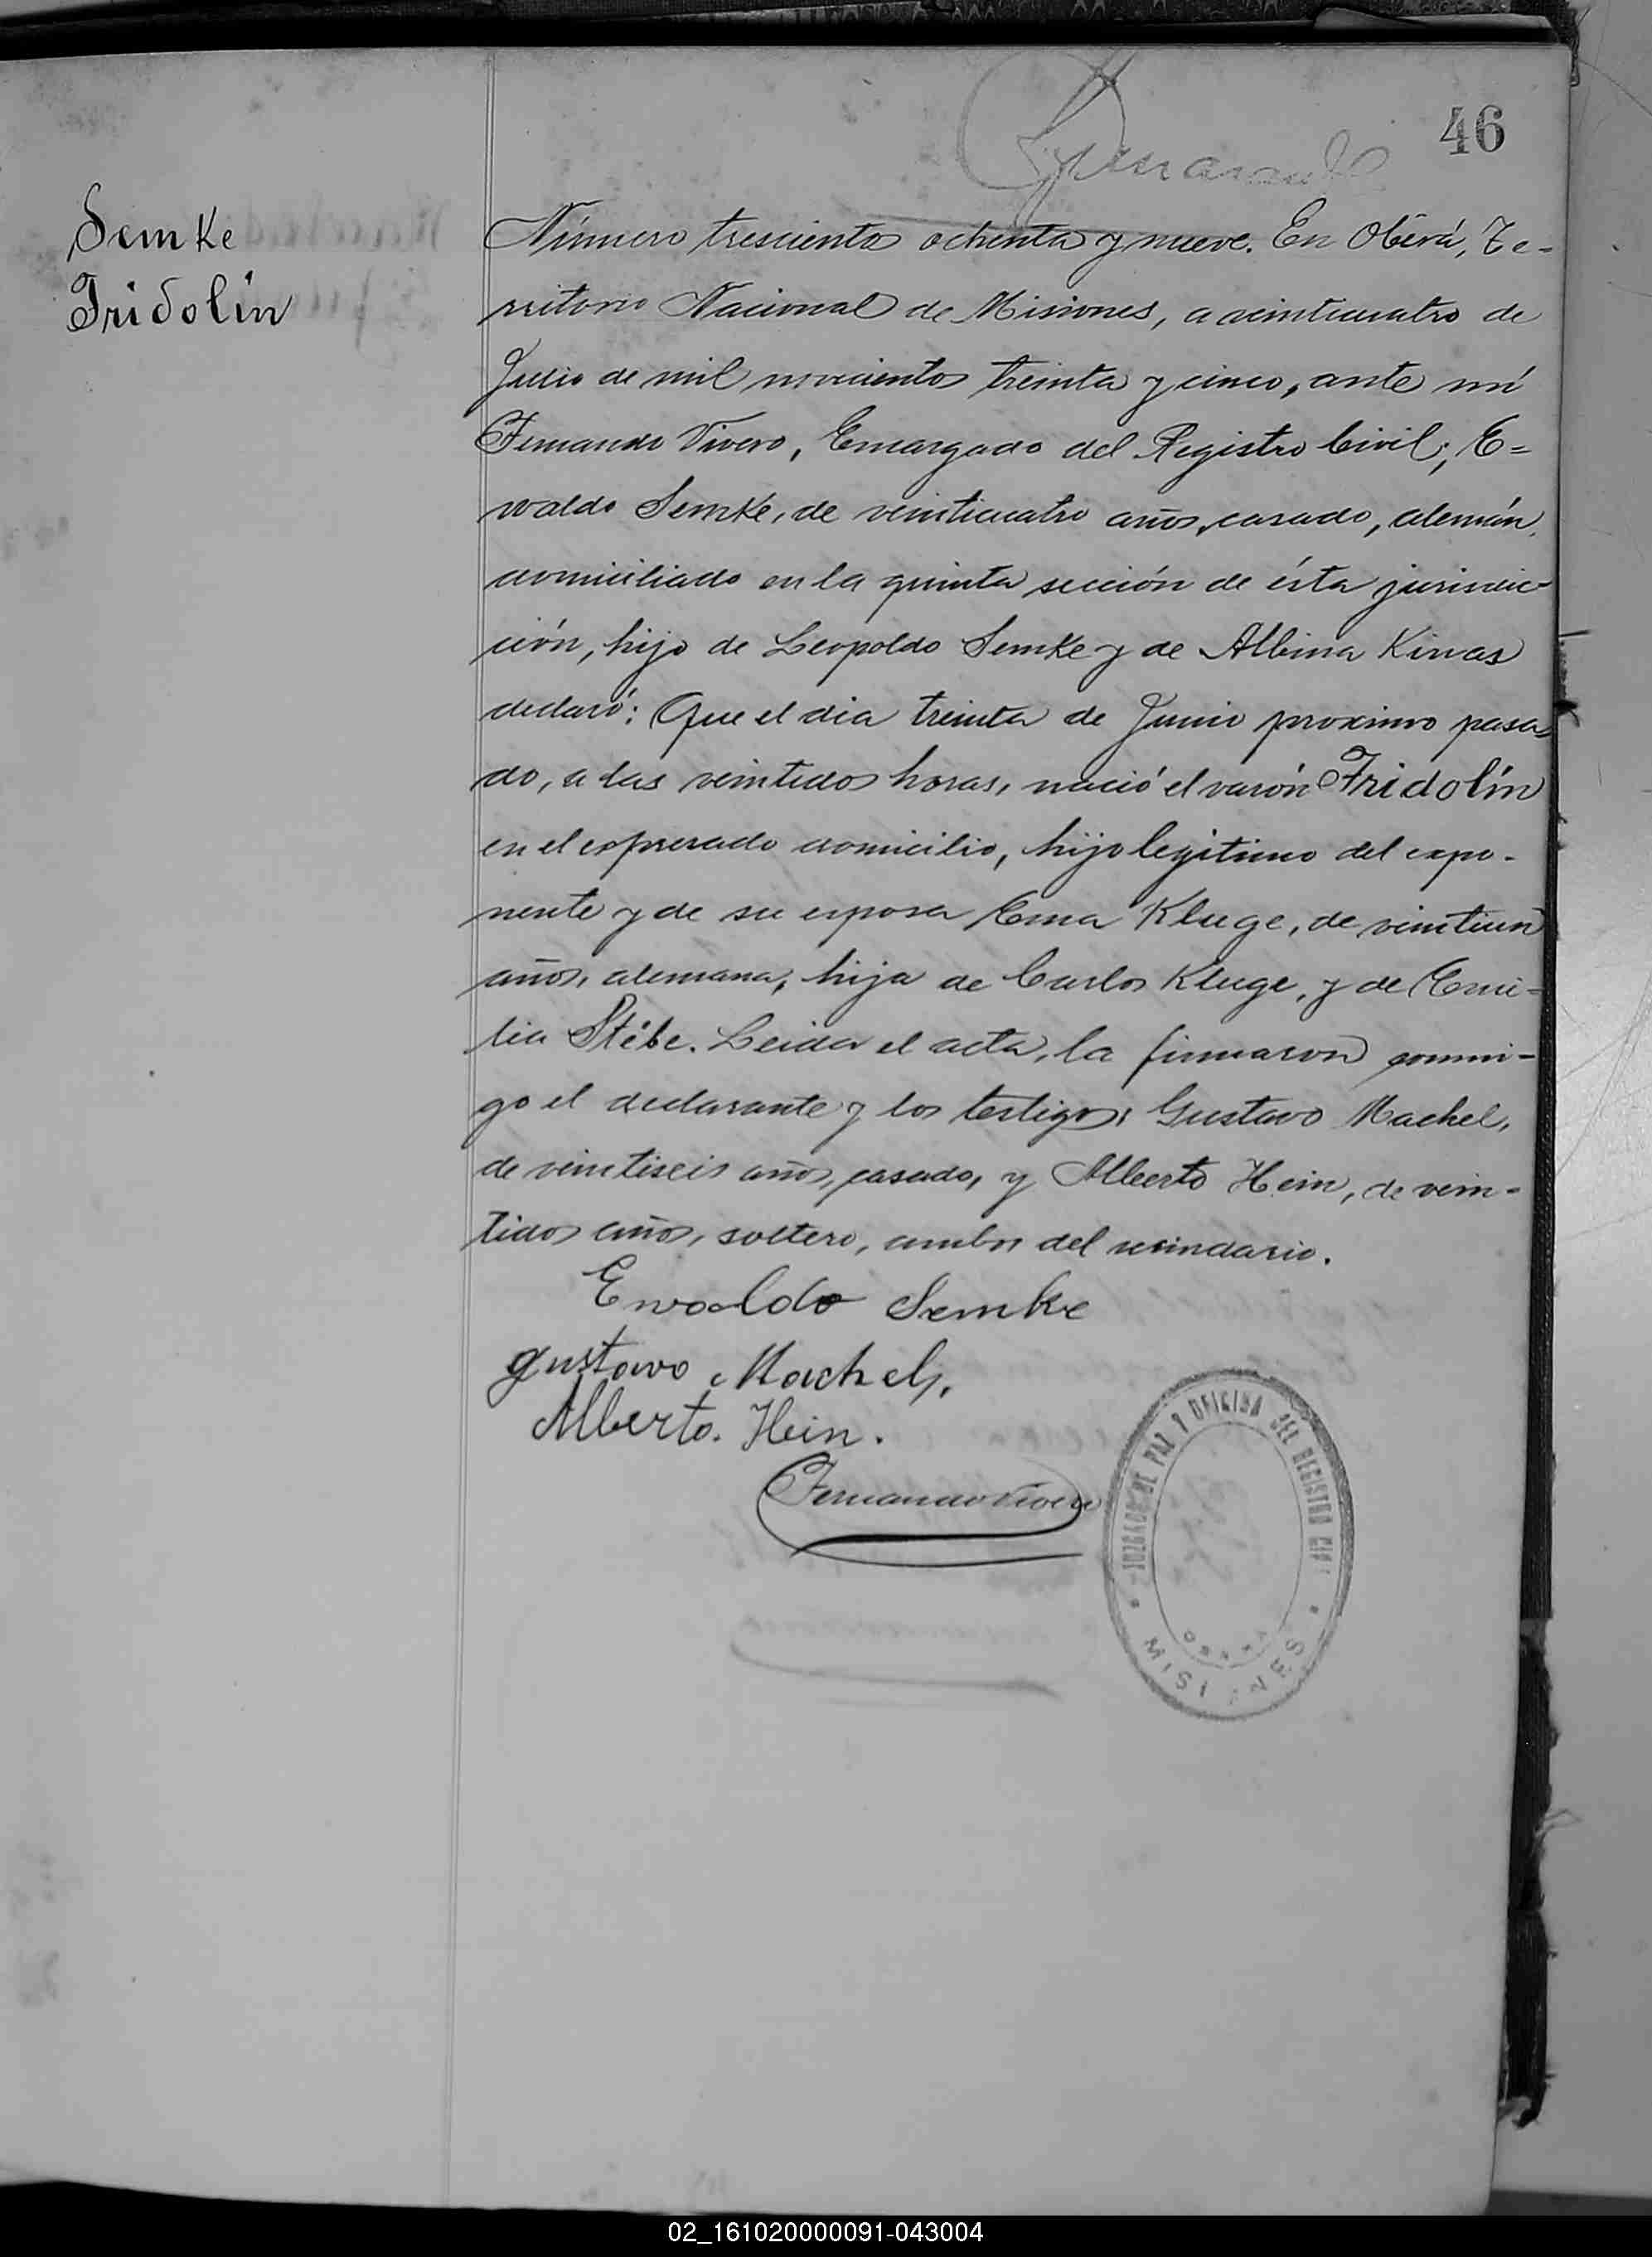 46
Semke
Fridolín
Número trescientos ochenta y nueve. En Oberá, Te-
rritorio Nacional de Misiones, a veinticuatro de
Julio de mil novecientos treinta y cinco, ante mí
Fernando Vivero, Encargado del Registro Civil; E=
waldo Semke, de veinticuatro años, casado, alemán,
domiciliado en la quinta sección de ésta jurisdic-
ción, hijo de Leopoldo Semke y de Albina Kinas
declaró: Que el dia treinta de Junio proximo pasa-
do, a las veintidos horas, nació el varón Fridolín
en el expresado domicilio, hijo legitimo del expo-
nente y de su esposa Ema Kluge, de veintiun
años, alemana, hija de Carlos Kluge, y de Emi-
lia Stébe. Leida el acta, la firmaron conmi-
go el declarante y los testigos: Gustavo Machel,
de veintiseis años, casado, y Alberto Hein, de vein-
tidos años, soltero, ambos del vecindario.
Ewaldo Semke
Gustavo Machel,
Alberto. Hein.
Fernando Vivero
JUZGADO DE PAZ Y OFICINA DEL REGISTRO CIVIL
MISIONES
02_161020000091-043004